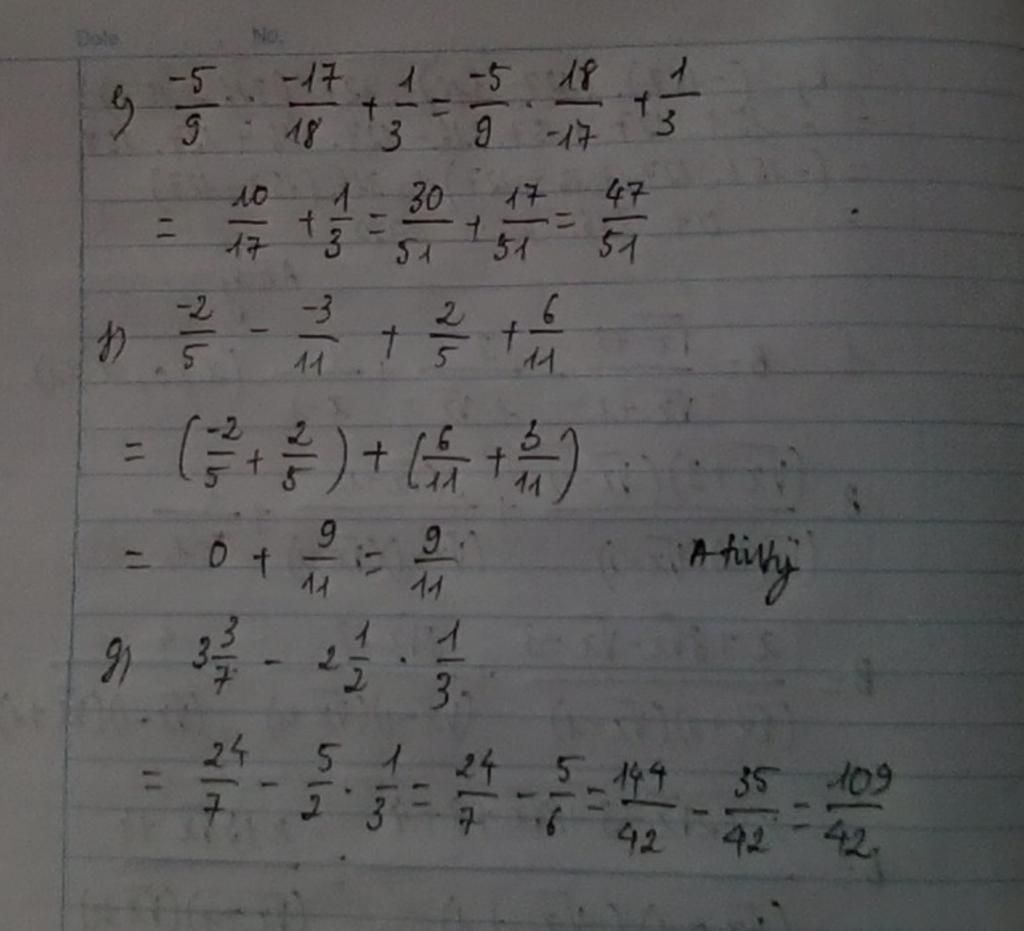 Date No.
e) -5/9 : -17/18 + 1/3 = -5/9 . 18/-17 + 1/3
= 10/17 + 1/3 = 30/51 + 17/51 = 47/51
f) -2/5 - -3/11 + 2/5 + 6/11
= (-2/5 + 2/5) + (6/11 + 3/11)
= 0 + 9/11 = 9/11
g) 3 3/7 - 2 1/2 . 1/3
= 24/7 - 5/2 . 1/3 = 24/7 - 5/6 = 144/42 - 35/42 = 109/42